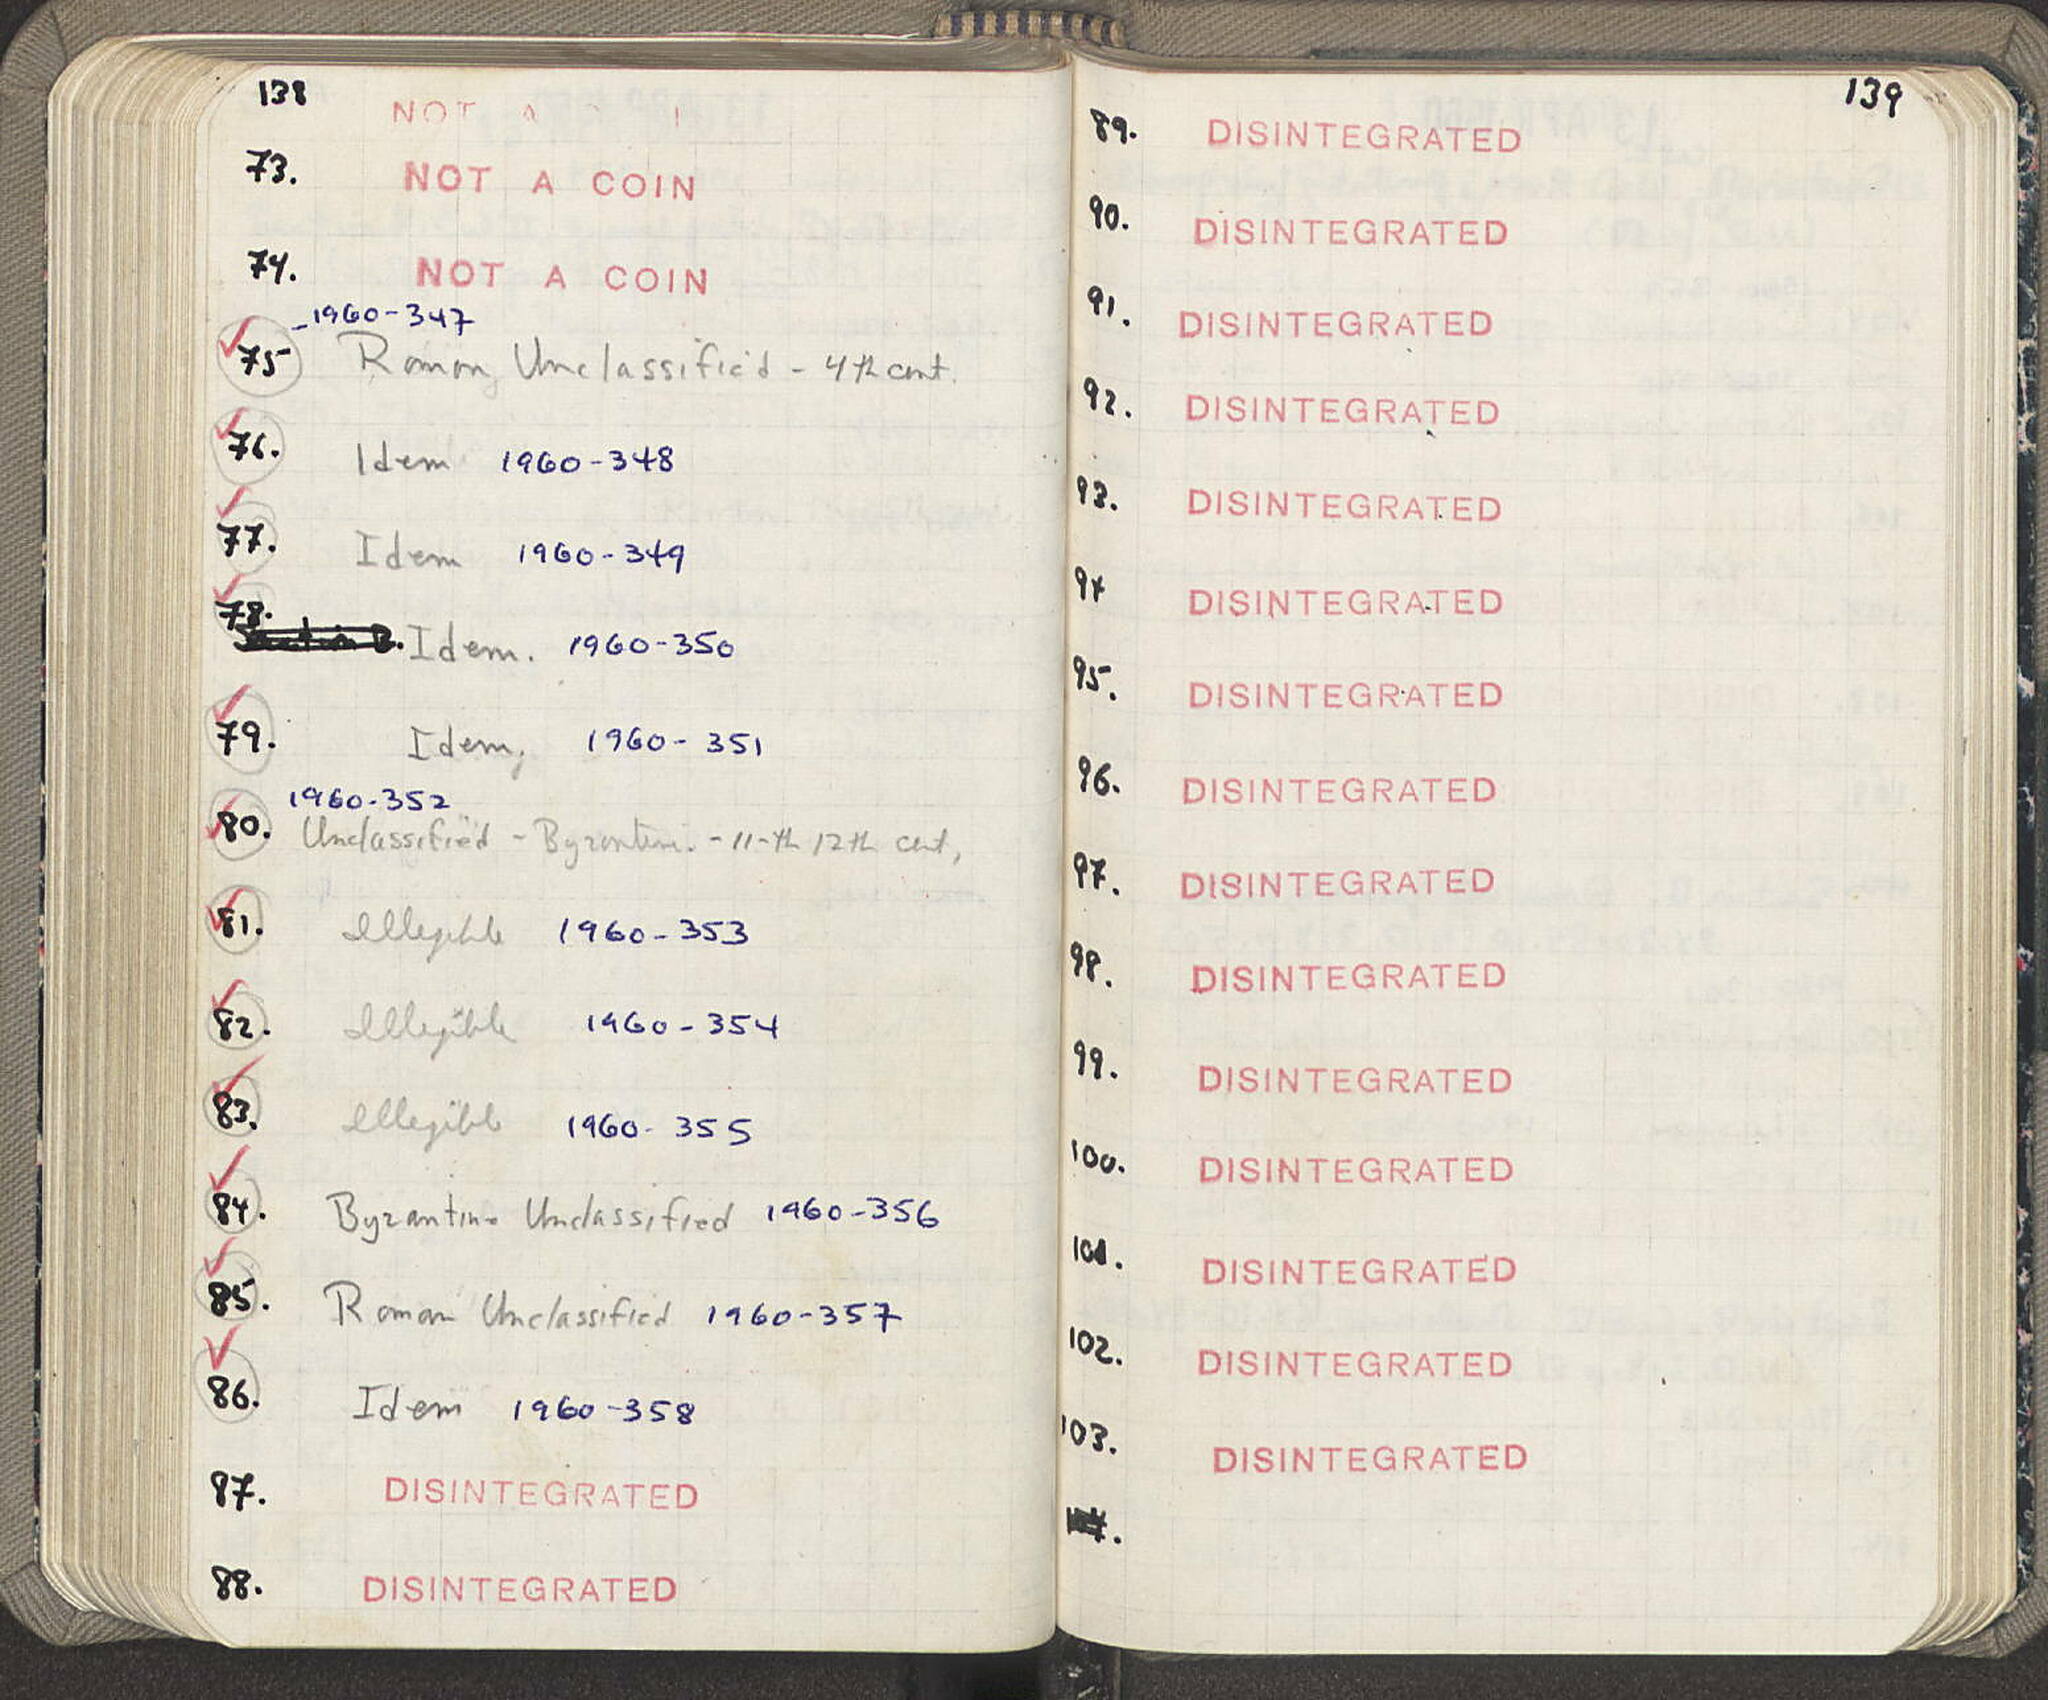 138
NOT A
73. NOT A COIN
74. NOT A COIN
1960-347
75 Roman, Unclassified - 4th cent.
76. Idem 1960-348
77. Idem 1960-349
78.
Idem. 1960-350
79. Idem, 1960-351
1960-352
80. Unclassified - Byzantine. - 11-th 12th cent,
81. Illegible 1960-353
82. Illegible 1960-354
83. Illegible 1960-355
84. Byzantine Unclassified 1960-356
85. Roman Unclassified 1960-357
86. Idem 1960-358
87. DISINTEGRATED
88. DISINTEGRATED
139
89. DISINTEGRATED
90. DISINTEGRATED
91. DISINTEGRATED
92. DISINTEGRATED
93. DISINTEGRATED
94 DISINTEGRATED
95. DISINTEGRATED
96. DISINTEGRATED
97. DISINTEGRATED
98. DISINTEGRATED
99. DISINTEGRATED
100. DISINTEGRATED
101. DISINTEGRATED
102. DISINTEGRATED
103. DISINTEGRATED